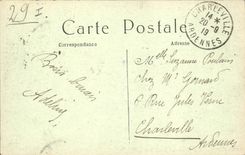 29 I
Carte Postale
Correspondance
Adresse
CHARLEVILLE
ARDENNES
20-9
19
Bons baisers
Melle Suzanne Poulain
Chez Mr
Rue Jules
Charleville
Ardennes